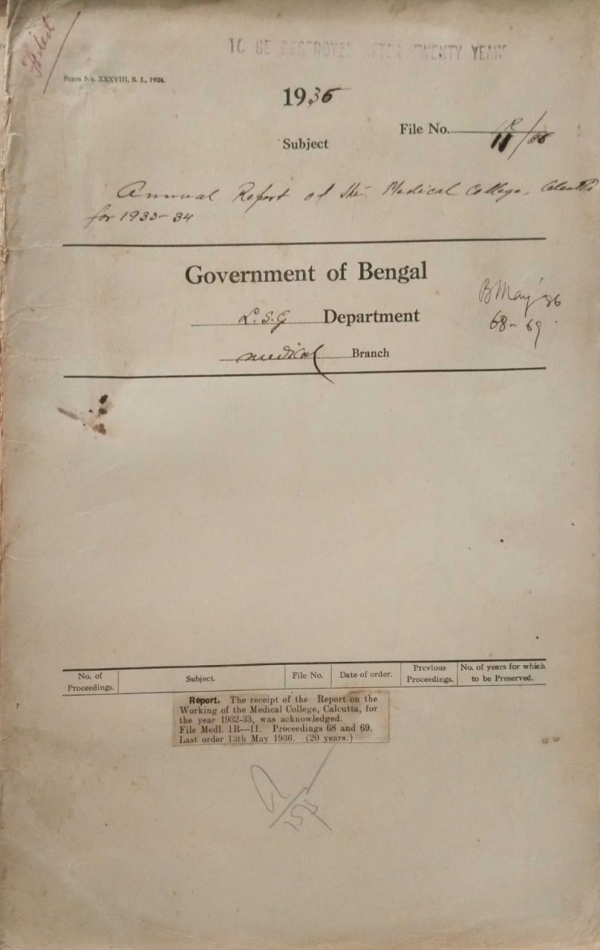 TO BE DESTROYED AFTER TWENTY YEARS
Form No. XXXVIII, S. I., 1924.
1936
File No.
Subject
Annual Report of the Medical College, Calcutta
for 1933-34
Government of Bengal
L.S.G Department
medical Branch
B May '36
68-69
No. of Proceedings. Subject. File No. Date of order. Previous Proceedings. No. of years for which to be Preserved.
Report. The receipt of the Report on the
Working of the Medical College, Calcutta, for
the year 1932-33, was acknowledged.
File Medl. 1R—11. Proceedings 68 and 69.
Last order 13th May 1936. (20 years.)